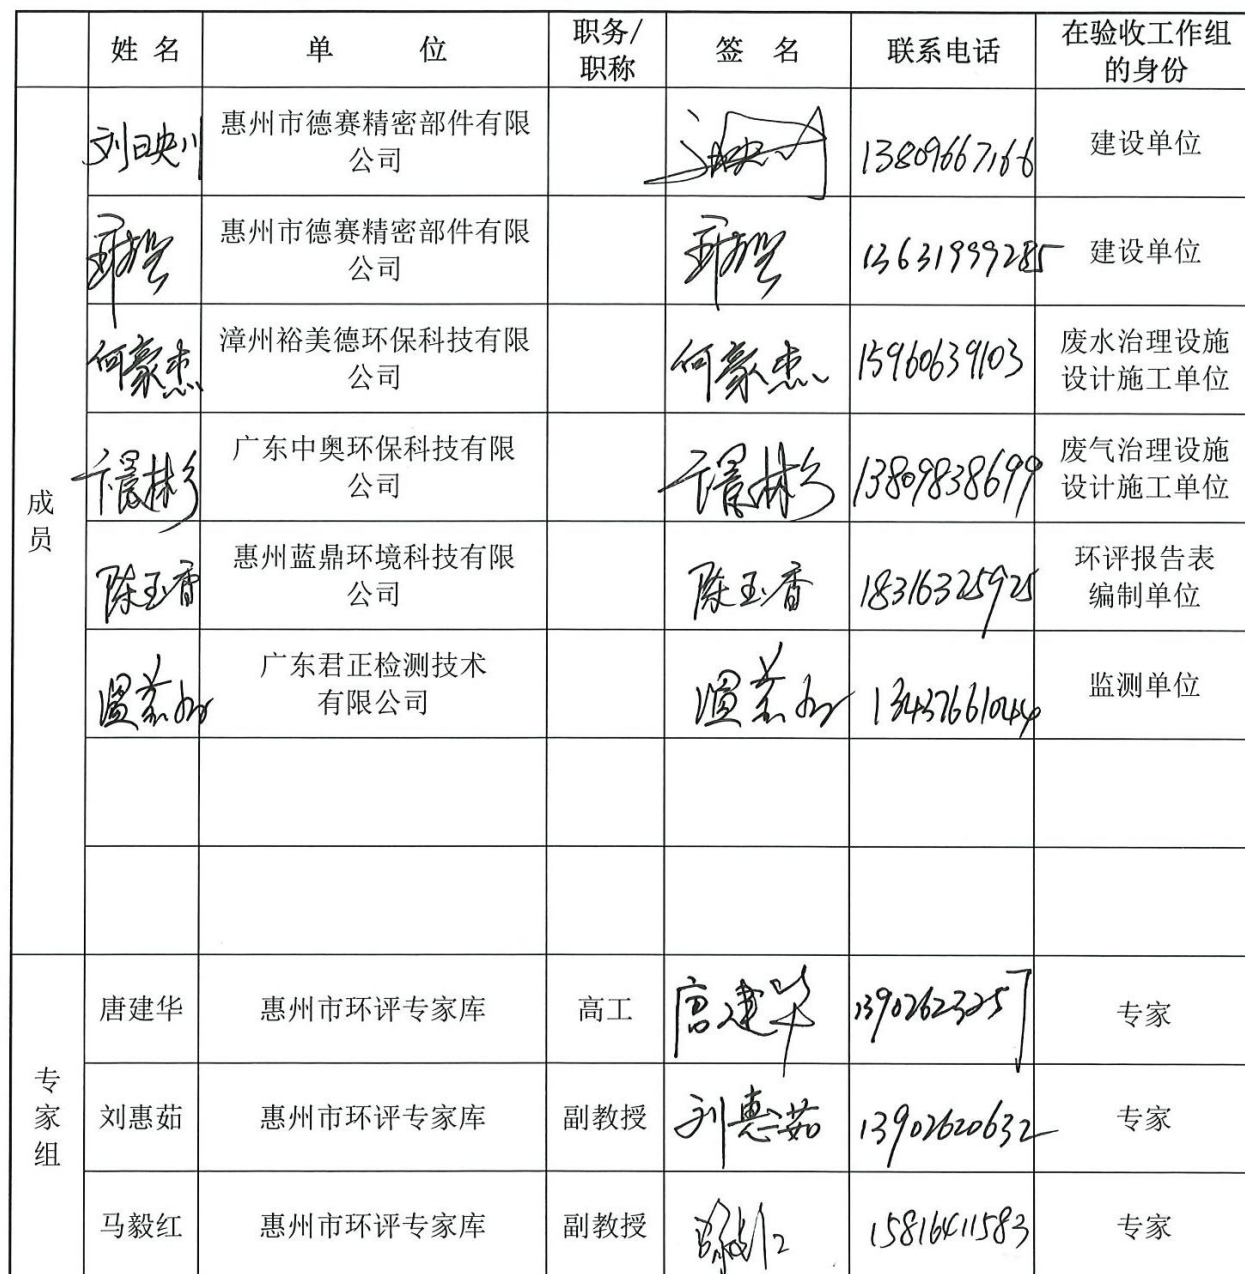 姓 名 单 位 职务/ 签 名 联系电话 在验收工作组
职称 的身份
成员
刘映川 惠州市德赛精密部件有限 13809667166 建设单位
公司
惠州市德赛精密部件有限 13631999285 建设单位
公司
何豪杰 漳州裕美德环保科技有限 何豪杰 15960639103 废水治理设施
公司 设计施工单位
卞景彬 广东中奥环保科技有限 卞景彬 13809838699 废气治理设施
公司 设计施工单位
陈玉香 惠州蓝鼎环境科技有限 陈玉香 18316325925 环评报告表
公司 编制单位
广东君正检测技术 13437661044 监测单位
有限公司
专家组
唐建华 惠州市环评专家库 高工 唐建华 13902623257 专家
刘惠茹 惠州市环评专家库 副教授 刘惠茹 13902620632 专家
马毅红 惠州市环评专家库 副教授 15816411583 专家